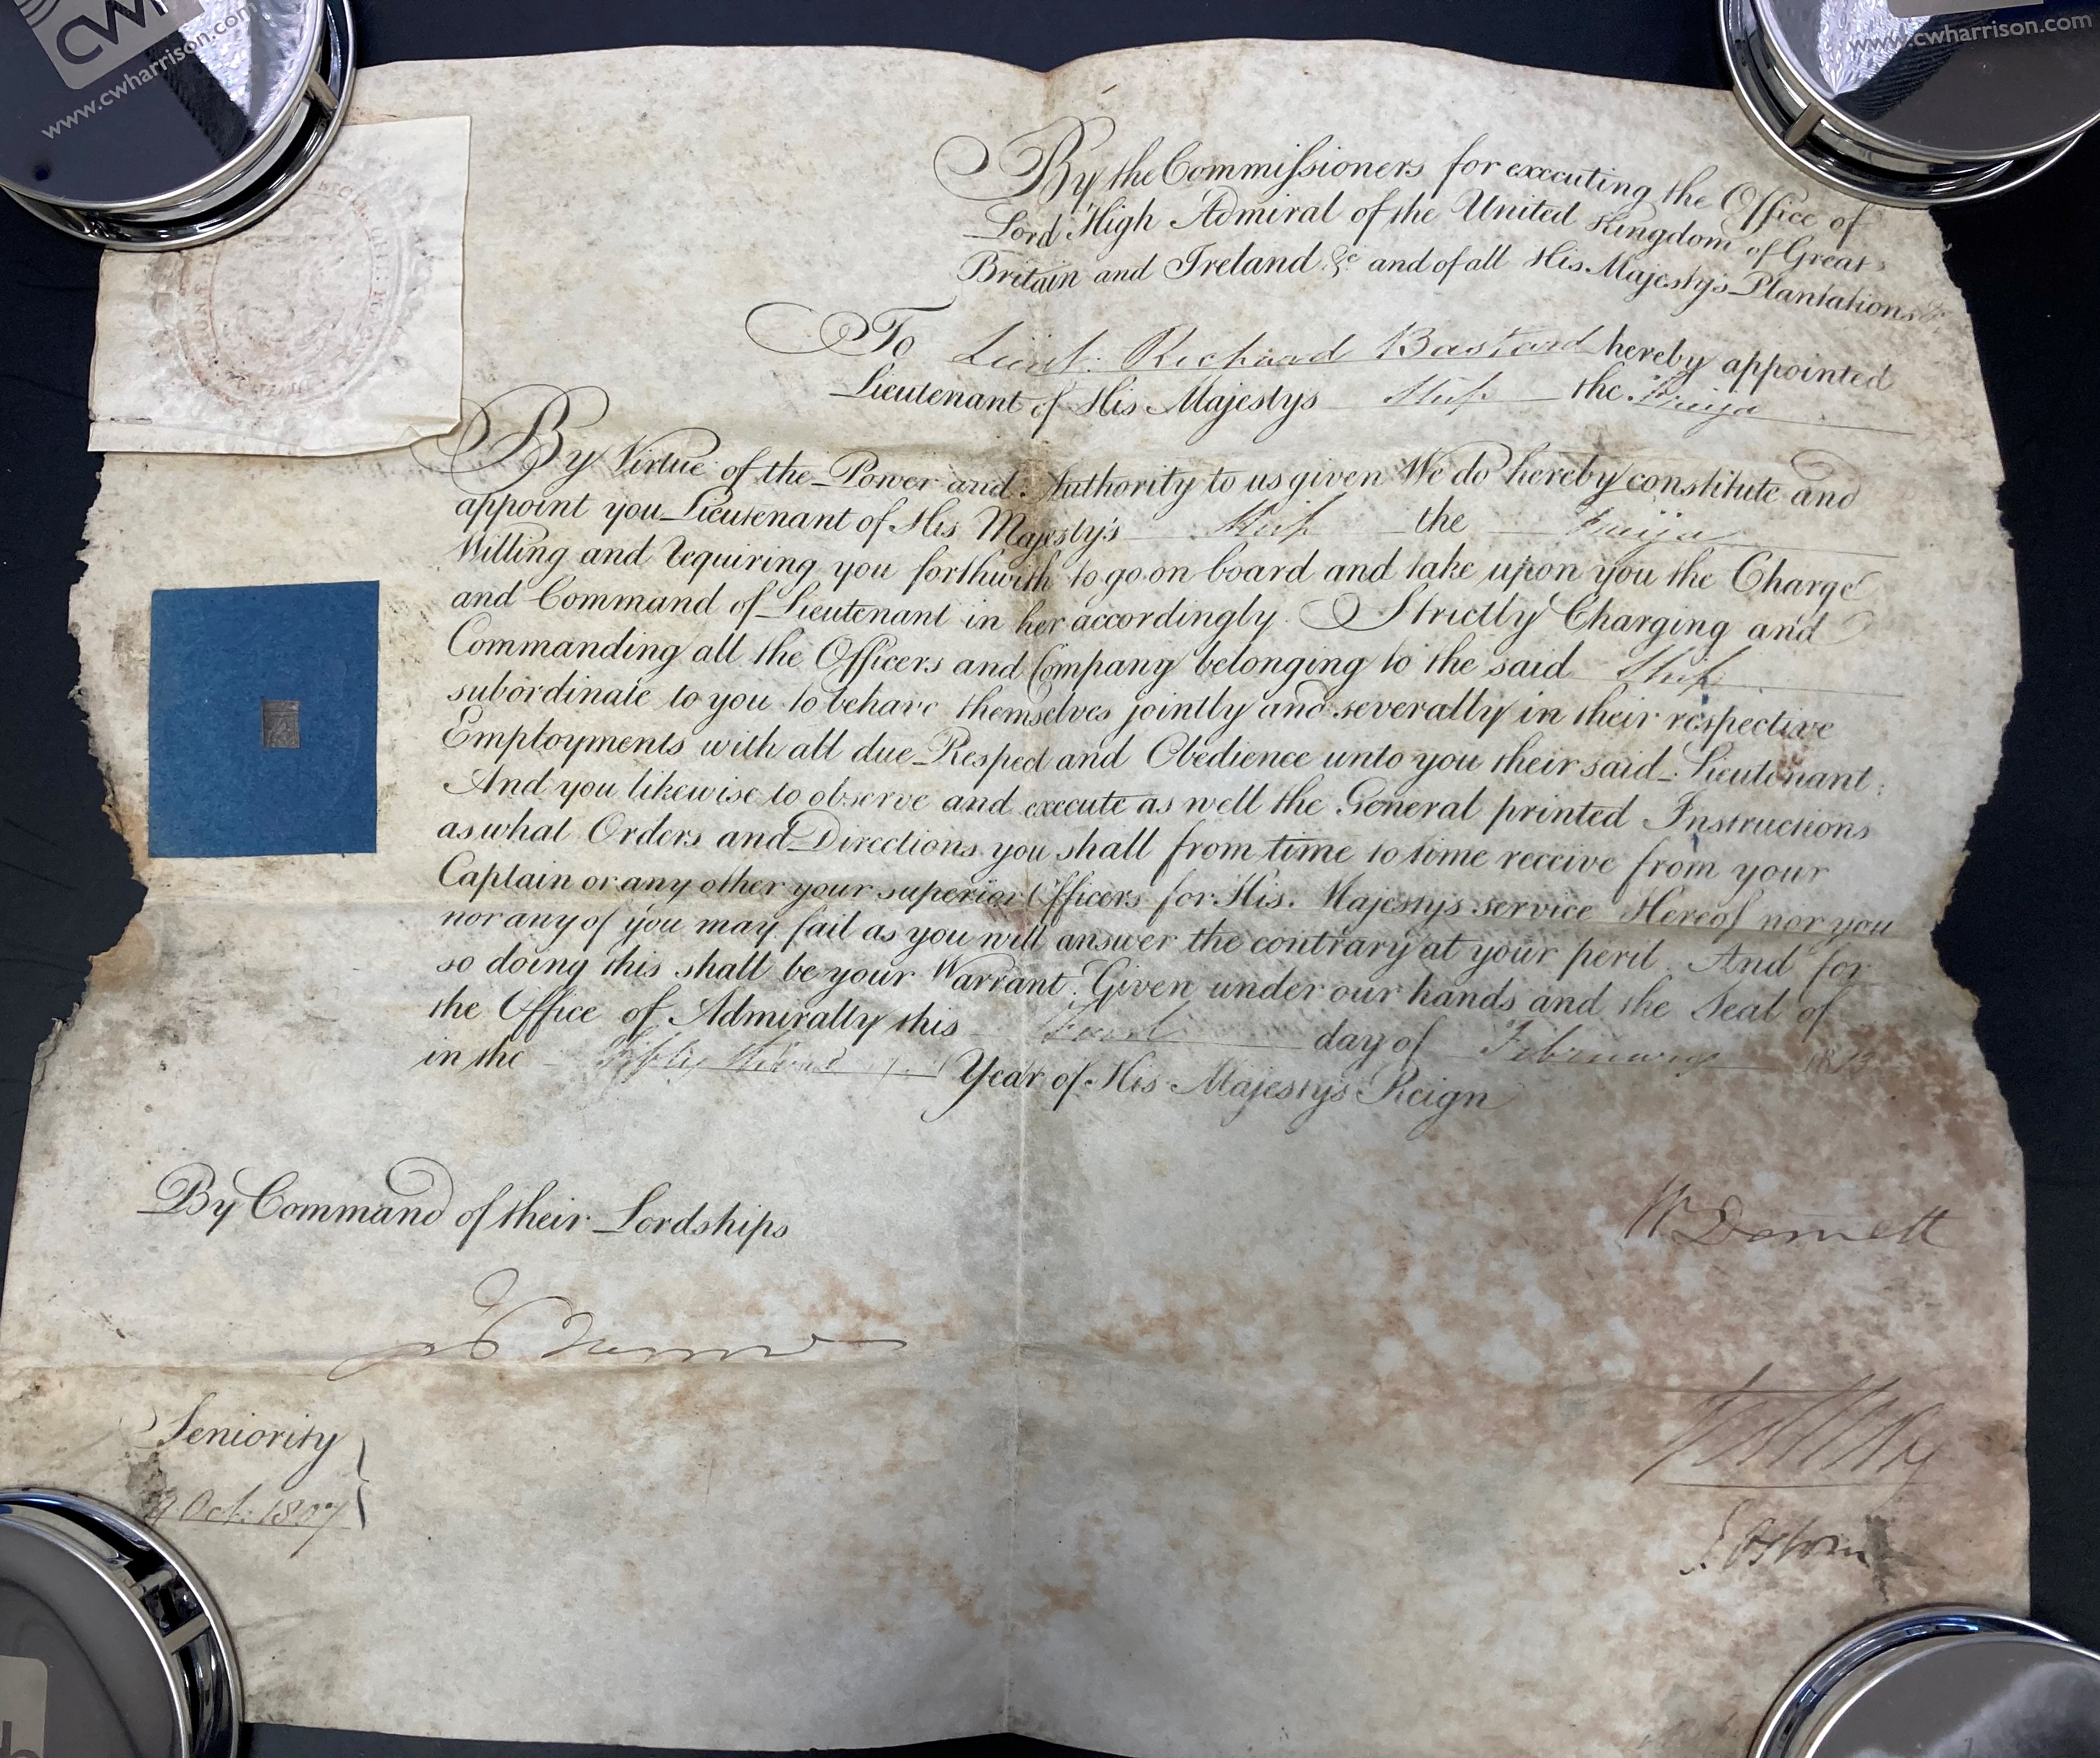 CW
www.cwharrison.com
www.cwharrison.com
By the Commissioners for executing the Office of
Lord High Admiral of the United Kingdom of Great
Britain and Ireland &c and of all His Majestys Plantations &c
To Lieut. Richard Bastard hereby appointed
Lieutenant of His Majestys Ship the Freija
By Virtue of the Power and Authority to us given We do hereby constitute and
appoint you Lieutenant of His Majesty's Ship the Freija
Willing and requiring you forthwith to go on board and take upon you the Charge
and Command of Lieutenant in her accordingly. Strictly Charging and
Commanding all the Officers and Company belonging to the said Ship
subordinate to you to behave themselves jointly and severally in their respective
Employments with all due Respect and Obedience unto you their said Lieutenant:
And you likewise to observe and execute as well the General printed Instructions
as what Orders and Directions you shall from time to time receive from your
Captain or any other your superior Officers for His Majestys service Hereof nor you
nor any of you may fail as you will answer the contrary at your peril. And for
so doing this shall be your Warrant. Given under our hands and the Seal of
the Office of Admiralty this day of February
in the Fifty third Year of His Majestys Reign
By Command of their Lordships
W Domett
Seniority
Oct. 1807
J Osborn